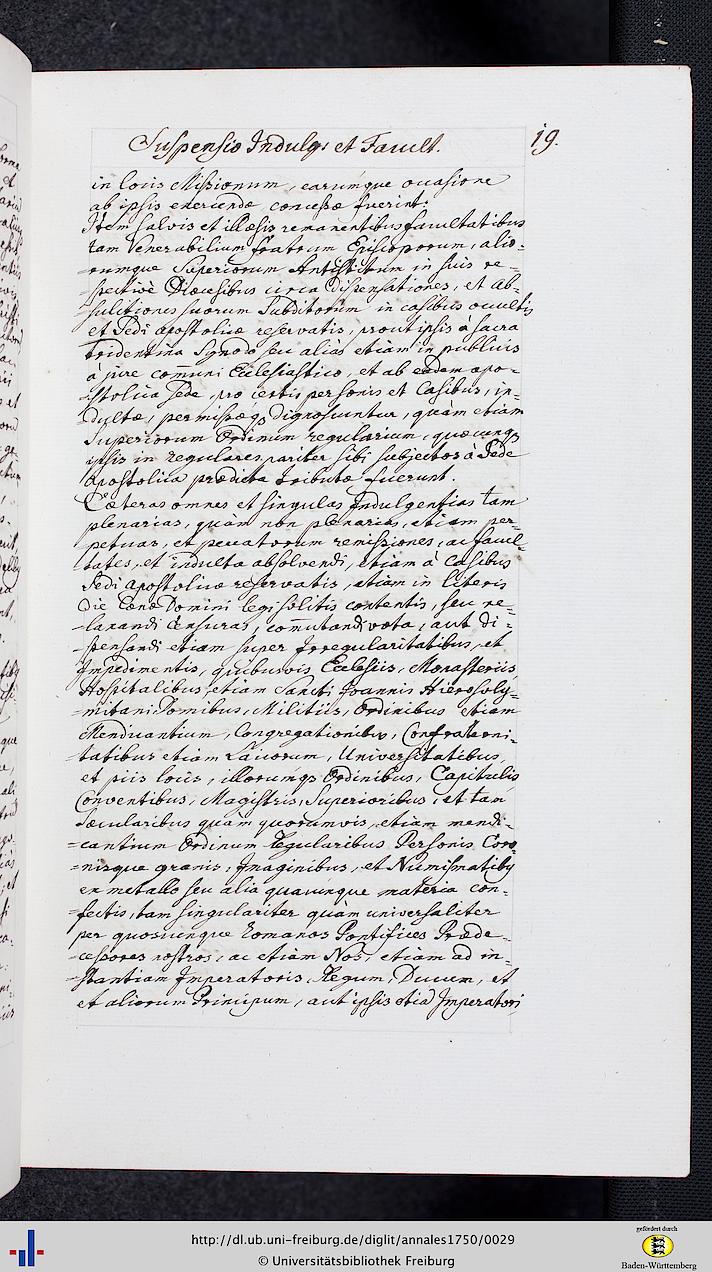 Suspensio Indulg: et Facult. 19.
in locis Missionum, earumque occasione
ab ipsis exercendæ concessæ fuerint:
Item salvis et illæsis remanentibus facultatibus
tam Venerabilium fratrum Episcoporum, alio-
-rumque Superiorum Antistitum in suis re-
-spective Diœcesibus circa dispensationes, et ab-
-solutiones suorum Subditorum in casibus occultis
et Sedi apostolicæ reservatis, prout ipsis à sacra
tridentina Synodo seu aliàs etiam in publicis
à jure com̄uni Ecclesiastico, et ab eadem apo-
-stolica Sede pro certis personis et Casibus, in-
-dultæ, permissæq3 dignoscuntur, quàm etiam
Superiorum Ordinum regularium, quæcunq3
ipsis in regulares pariter sibi subjectos à Sede
Apostolica prædicta tributæ fuerunt.
Cæteras omnes et singulas Indulgentias tam
plenarias, quàm non plenarias, etiam per-
petuas, et peccatorum remissiones, ac facul-
tates, et indulta absolvendi, etiam à Casibus
Sedi Apostolicæ reservatis, etiam in literis
die Cœnæ Domini legi solitis contentis, seu re-
-laxandi Censuras, com̄utandi vota, aut di-
-spensandi etiam super Irregularitatibus, et
Impedimentis, quibusvis Ecclesiis, Monasteriis,
Hospitalibus, etiam Sancti Joannis Hierosoly-
-mitani Domibus, Militiis, Ordinibus etiam
Mendicantium, Congregationibus, Confraterni-
-tatibus etiam Laicorum, Universitatibus,
et piis locis, illorumq3 Ordinibus, Capitulis
Conventibus, Magistris, Superioribus, et tam
Sæcularibus quàm quorumvis, etiam mendi-
-cantium Ordinum Regularibus Personis, Coro-
-nisque granis, Imaginibus, et Numismatibus
ex metallo seu alia quacunque materia con-
-fectis, tam singulariter quàm universaliter
per quoscunque Romanos Pontifices Præde-
-cessores nostros, ac etiam Nos, etiam ad in-
-stantiam Imperatoris, Regum, Ducum, et
et aliorum Principum, aut ipsis etiā Imperatori,
http://dl.ub.uni-freiburg.de/diglit/annales1750/0029
© Universitätsbibliothek Freiburg
gefördert durch
Baden-Württemberg